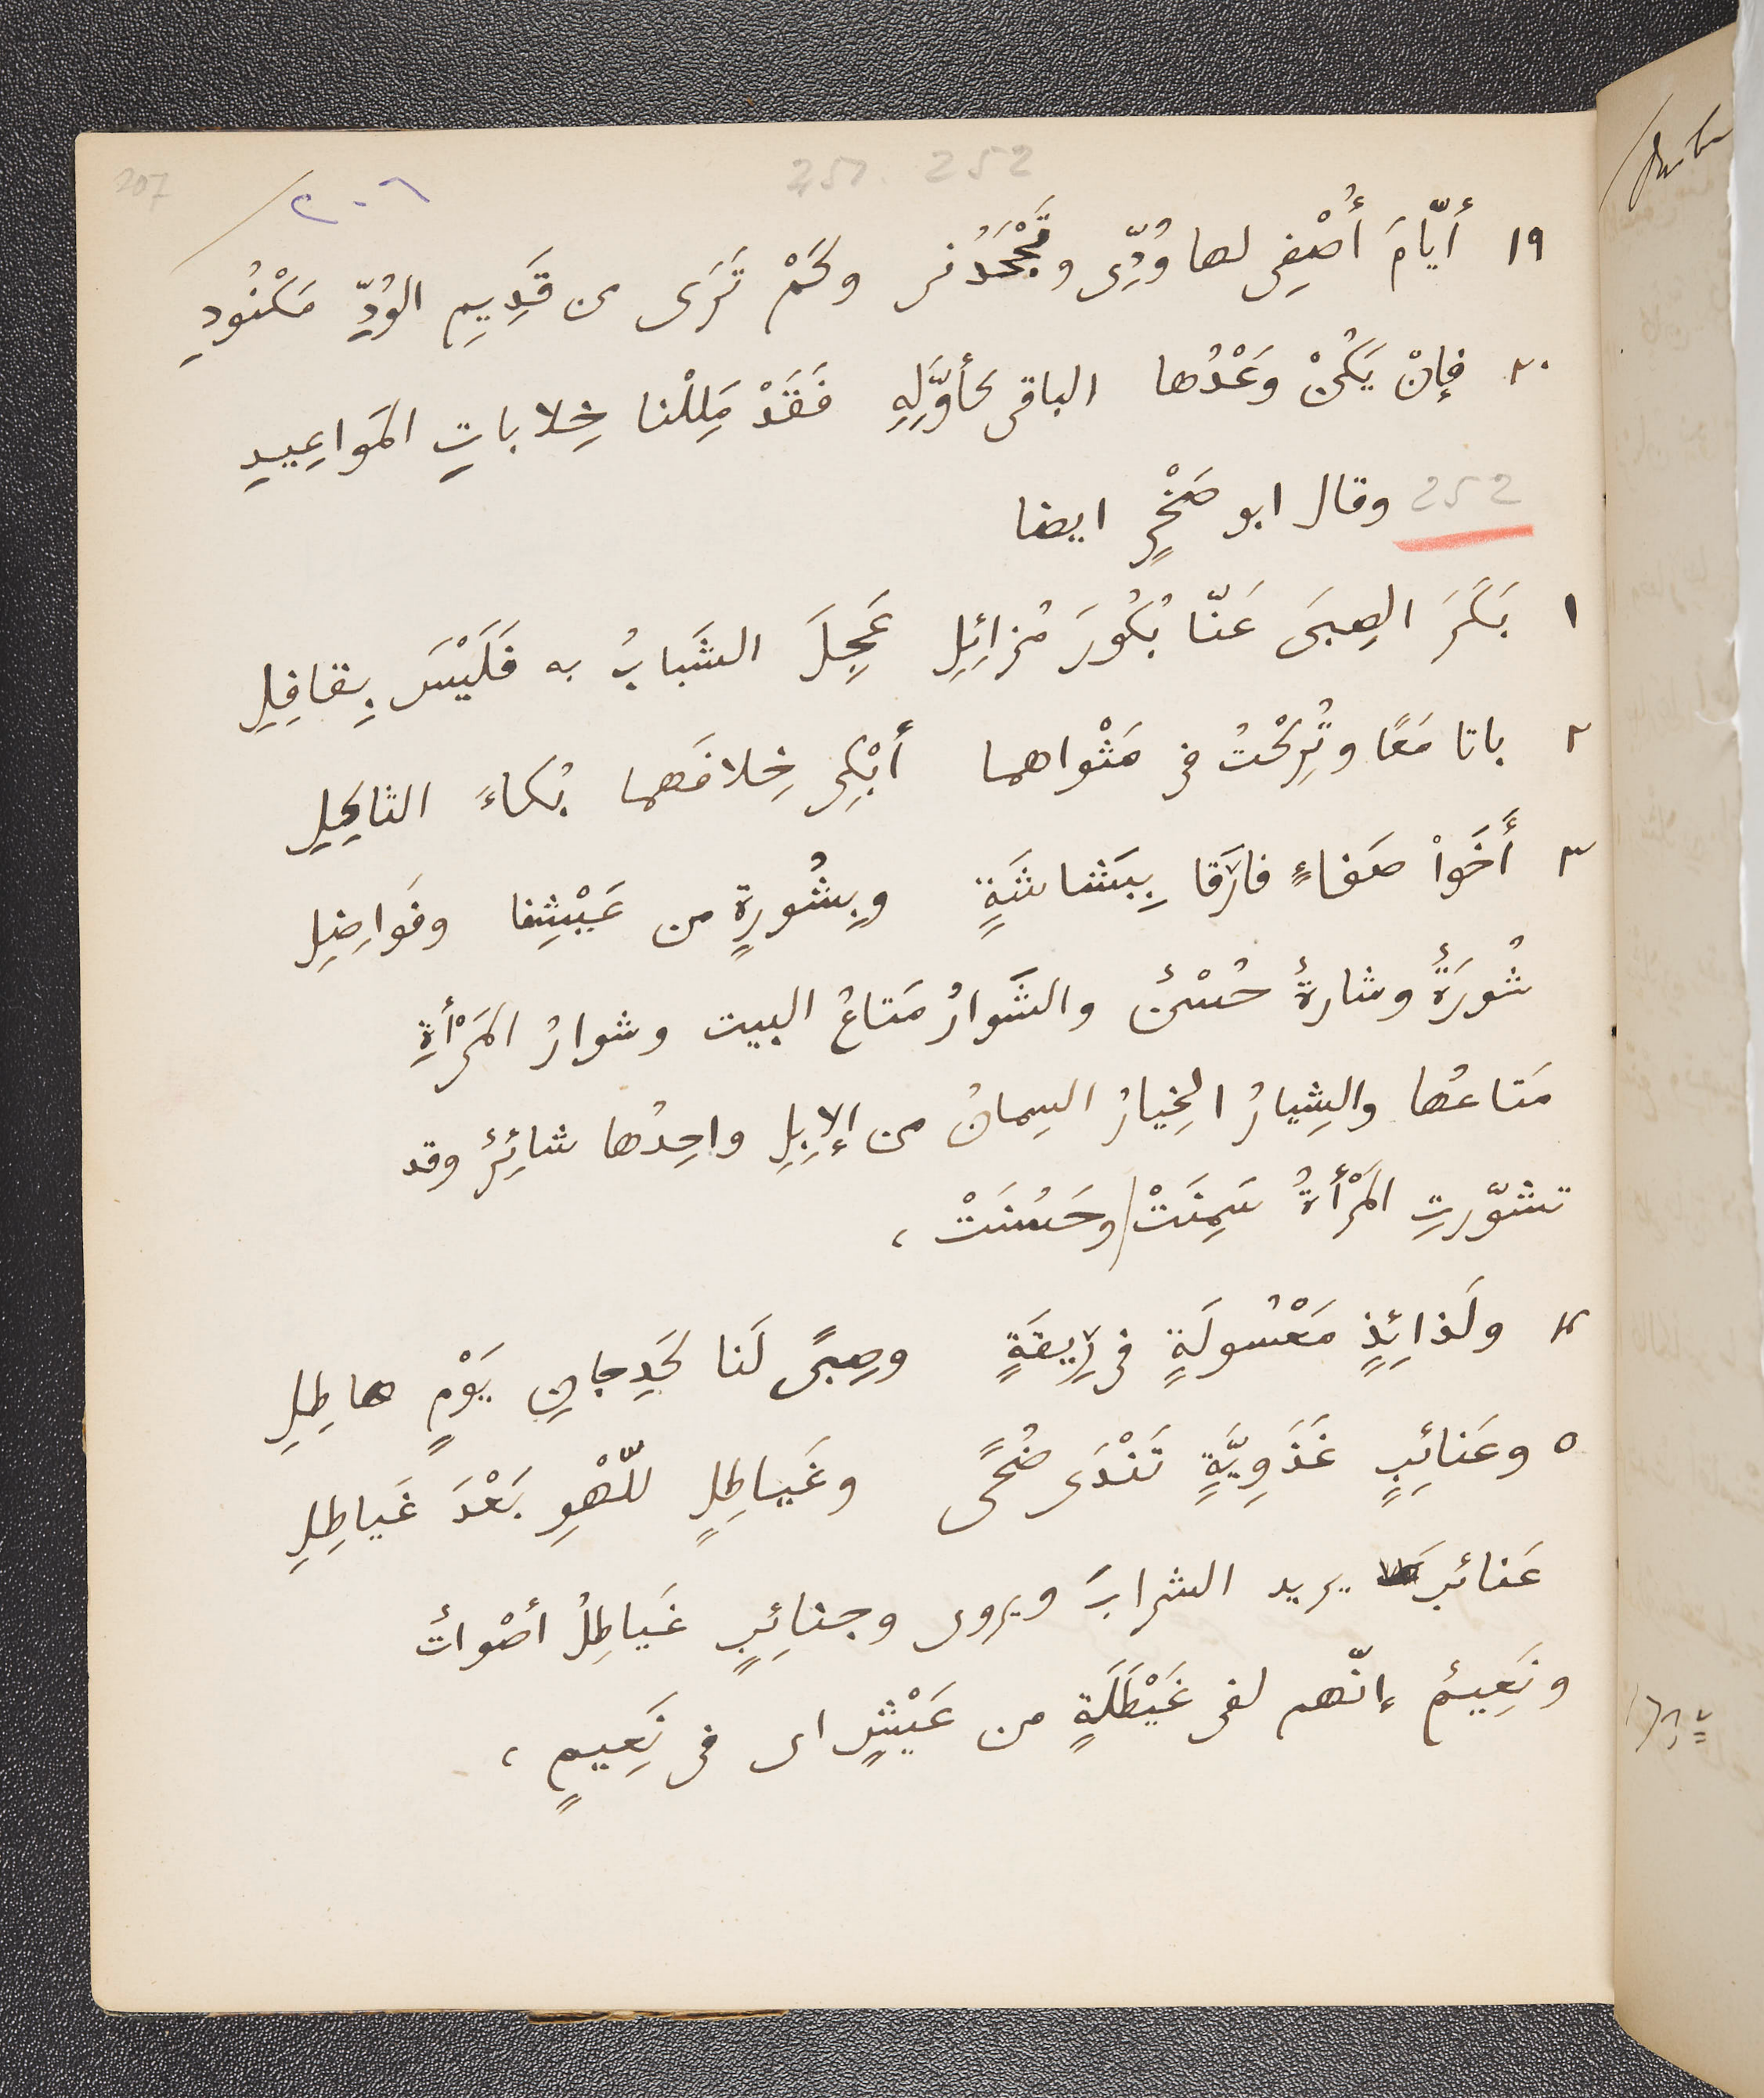 207
251. 252
٢٠٦
١٩ أيّامَ أُصْفِى لها وُدِّى وتَجْحَدُنى وكَمْ تَرَى من قَدِيمِ الوُدِّ مَكْنُودِ
٢٠ فإنْ يَكُنْ وَعْدُها الباقى كأوَّلِهِ فَقَدْ مَلِلْنا خِلاباتِ المَواعِيدِ
252 وقال ابو صَخْرٍ ايضا
١ بَكَرَ الصِبَى عَنّا بُكُورَ مُزائِلِ عَجِلَ الشَبابُ به فَلَيْسَ بِقافِلِ
٢ باتا مَعًا وتُرِكْتُ فى مَثْواهما أَبْكِى خِلافَهما بُكاءَ الثاكِلِ
٣ أَخَوَا صَفاءٍ فارَقا بِبَشاشَةٍ وبِشُورةٍ من عَيْشِنا وفَواضِلِ
شُورَةٌ وشارةٌ حُسْنٌ والشَوارُ مَتاعُ البيت وشوارُ المَرْأةِ
مَتاعُها والشِيارُ الخِيارُ السِمانُ من الإبِلِ واحِدُها شائِرٌ وقد
تشوّرتِ المَرْأةُ سَمِنَتْ وحَسُنَتْ ،
٤ ولَذائِذٍ مَعْسُولَةٍ فى رِيقَةٍ وصِبًى لَنا كَدِجانِ يَوْمٍ هاطِلِ
٥ وعَنائِبٍ غَذَوِيَّةٍ تَنْدَى ضُحًى وغَياطِلٍ للّهْوِ بَعْدَ غَياطِلِ
عَنائب يريد الشرابَ ويروى وجنائِبٍ غَياطِلُ أصْواتٌ
ونَعِيمٌ إنّهم لفى غَيْطَلَةٍ من عَيْشٍ اى فى نَعِيمٍ ،